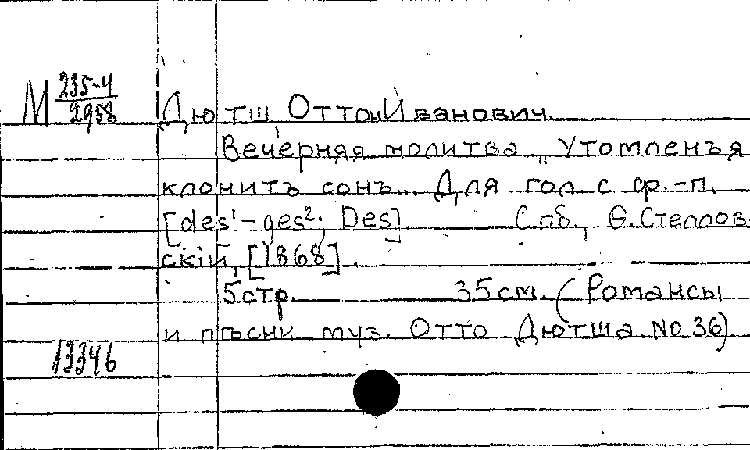 М 235-4
2958
Дютш Отто Иванович.
Вечерняя молитва „Утомленъ я
клонитъ сонъ... Для гол. с ф.-п.
[des¹-ges²; Des] Спб., Ѳ. Стеллов-
скій, [1868].
5 стр. 35 см. (Романсы
и пѣсни муз. Отто Дютша. No 36)
13346